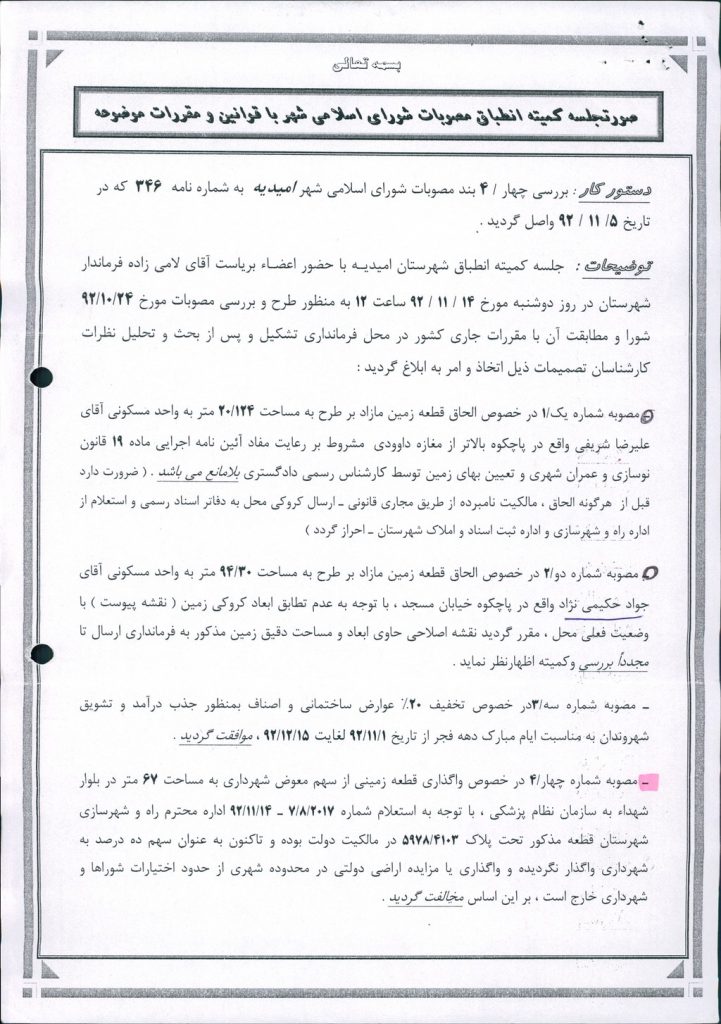 بسمه تعالی
صورتجلسه کمیته انطباق مصوبات شورای اسلامی شهر با قوانین و مقررات موضوعه
دستور کار : بررسی چهار / ۴ بند مصوبات شورای اسلامی شهر امیدیه به شماره نامه ۳۴۶ که در
تاریخ ۵/ ۱۱ / ۹۲ واصل گردید .
توضیحات : جلسه کمیته انطباق شهرستان امیدیه با حضور اعضاء بریاست آقای لامی زاده فرماندار
شهرستان در روز دوشنبه مورخ ۱۴ / ۱۱ / ۹۲ ساعت ۱۲ به منظور طرح و بررسی مصوبات مورخ ۹۲/۱۰/۲۴
شورا و مطابقت آن با مقررات جاری کشور در محل فرمانداری تشکیل و پس از بحث و تحلیل نظرات
کارشناسان تصمیمات ذیل اتخاذ و امر به ابلاغ گردید :
مصوبه شماره یک/۱ در خصوص الحاق قطعه زمین مازاد بر طرح به مساحت ۲۰/۱۲۴ متر به واحد مسکونی آقای
علیرضا شریفی واقع در پاچکوه بالاتر از مغازه داوودی مشروط بر رعایت مفاد آئین نامه اجرایی ماده ۱۹ قانون
نوسازی و عمران شهری و تعیین بهای زمین توسط کارشناس رسمی دادگستری بلامانع می باشد . ( ضرورت دارد
قبل از هرگونه الحاق ، مالکیت نامبرده از طریق مجاری قانونی ـ ارسال کروکی محل به دفاتر اسناد رسمی و استعلام از
اداره راه و شهرسازی و اداره ثبت اسناد و املاک شهرستان ـ احراز گردد )
مصوبه شماره دو/۲ در خصوص الحاق قطعه زمین مازاد بر طرح به مساحت ۹۴/۳۰ متر به واحد مسکونی آقای
جواد حکیمی نژاد واقع در پاچکوه خیابان مسجد ، با توجه به عدم تطابق ابعاد کروکی زمین ( نقشه پیوست ) با
وضعیت فعلی محل ، مقرر گردید نقشه اصلاحی حاوی ابعاد و مساحت دقیق زمین مذکور به فرمانداری ارسال تا
مجدداً بررسی وکمیته اظهارنظر نماید .
ـ مصوبه شماره سه/۳در خصوص تخفیف ۲۰٪ عوارض ساختمانی و اصناف بمنظور جذب درآمد و تشویق
شهروندان به مناسبت ایام مبارک دهه فجر از تاریخ ۹۲/۱۱/۱ لغایت ۹۲/۱۲/۱۵ ، موافقت گردید .
ـ مصوبه شماره چهار/۴ در خصوص واگذاری قطعه زمینی از سهم معوض شهرداری به مساحت ۶۷ متر در بلوار
شهداء به سازمان نظام پزشکی ، با توجه به استعلام شماره ۷/۸/۲۰۱۷ ـ ۹۲/۱۱/۱۴ اداره محترم راه و شهرسازی
شهرستان قطعه مذکور تحت پلاک ۵۹۷۸/۴۱۰۳ در مالکیت دولت بوده و تاکنون به عنوان سهم ده درصد به
شهرداری واگذار نگردیده و واگذاری یا مزایده اراضی دولتی در محدوده شهری از حدود اختیارات شوراها و
شهرداری خارج است ، بر این اساس مخالفت گردید .